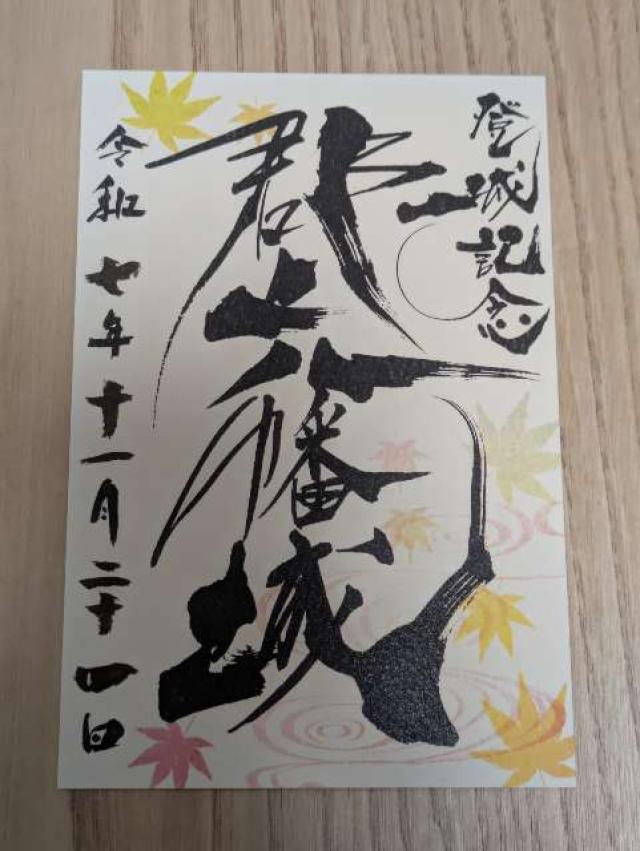 登城記念
郡上八幡城
令和七年十一月二十一日